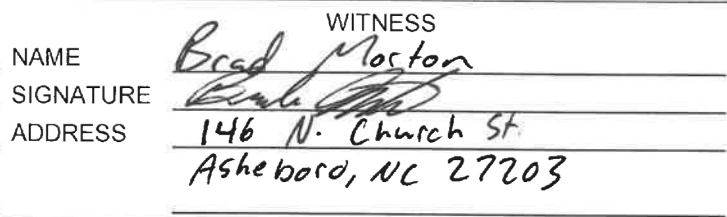 WITNESS
NAME Brad Morton
SIGNATURE
ADDRESS 146 N. Church St.
Asheboro, NC 27203